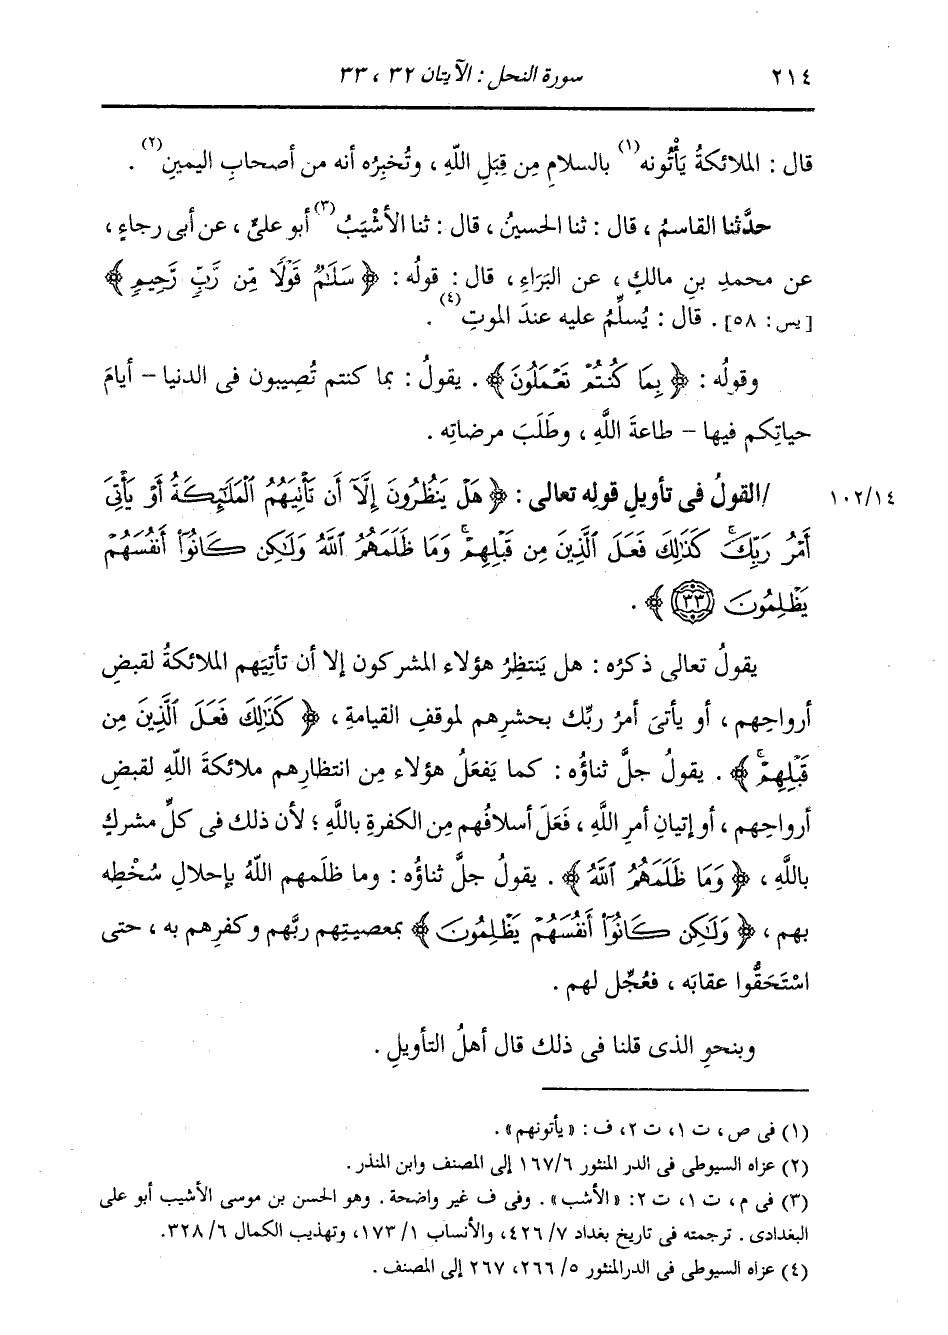 ٢١٤ سورة النحل : الآيتان ٣٢ ، ٣٣
قال : الملائكةُ يَأْتُونه(١) بالسلامِ مِن قِبَلِ اللَّهِ ، وتُخبِرُه أنه من أصحابِ اليمينِ(٢) .
حدَّثنا القاسمُ ، قال : ثنا الحسينُ ، قال : ثنا الأشْيَبُ(٣) أبو علىٍّ ، عن أبى رجاءٍ ،
عن محمدِ بنِ مالكٍ ، عن البَرَاءِ ، قال : قولُه : ﴿ سَلَٰمٌ قَوْلًا مِّن رَّبٍّ رَّحِيمٍ ﴾
[يس : ٥٨] . قال : يُسلِّمُ عليه عندَ الموتِ(٤) .
وقولُه : ﴿ بِمَا كُنتُمْ تَعْمَلُونَ ﴾ . يقولُ : بما كنتم تُصِيبون فى الدنيا – أيامَ
حياتِكم فيها – طاعةَ اللَّهِ ، وطَلَبَ مرضاتِه .
/القولُ فى تأويلِ قولِه تعالى : ﴿ هَلْ يَنظُرُونَ إِلَّآ أَن تَأْتِيَهُمُ ٱلْمَلَٰٓئِكَةُ أَوْ يَأْتِىَ ١٠٢/١٤
أَمْرُ رَبِّكَ ۚ كَذَٰلِكَ فَعَلَ ٱلَّذِينَ مِن قَبْلِهِمْ ۚ وَمَا ظَلَمَهُمُ ٱللَّهُ وَلَٰكِن كَانُوٓا۟ أَنفُسَهُمْ
يَظْلِمُونَ ٣٣ ﴾ .
يقولُ تعالى ذكرُه : هل يَنتظِرُ هؤلاء المشركون إلا أن تأتِيَهم الملائكةُ لقبضِ
أرواحِهم ، أو يأتىَ أمرُ ربِّك بحشرِهم لموقفِ القيامةِ ، ﴿ كَذَٰلِكَ فَعَلَ ٱلَّذِينَ مِن
قَبْلِهِمْ ۚ ﴾ . يقولُ جلَّ ثناؤُه : كما يَفعَلُ هؤلاء مِن انتظارِهم ملائكةَ اللَّهِ لقبضِ
أرواحِهم ، أو إتيانِ أمرِ اللَّهِ ، فَعَلَ أسلافُهم مِن الكفرةِ باللَّهِ ؛ لأن ذلك فى كلِّ مشركٍ
باللَّهِ ، ﴿ وَمَا ظَلَمَهُمُ ٱللَّهُ ﴾ . يقولُ جلَّ ثناؤُه : وما ظلَمهم اللَّهُ بإحلالِ سُخْطِه
بهم ، ﴿ وَلَٰكِن كَانُوٓا۟ أَنفُسَهُمْ يَظْلِمُونَ ﴾ بمعصيتِهم ربَّهم وكفرِهم به ، حتى
اسْتَحَقُّوا عقابَه ، فعُجِّل لهم .
وبنحوِ الذى قلنا فى ذلك قال أهلُ التأويلِ .
(١) فى ص، ت ١، ت ٢، ف : «يأتونهم» .
(٢) عزاه السيوطى فى الدر المنثور ١٦٧/٦ إلى المصنف وابن المنذر .
(٣) فى م، ت ١، ت ٢: «الأشب» . وفى ف غير واضحة . وهو الحسن بن موسى الأشيب أبو على
البغدادى . ترجمته فى تاريخ بغداد ٧/ ٤٢٦، والأنساب ١/ ١٧٣، وتهذيب الكمال ٦/ ٣٢٨.
(٤) عزاه السيوطى فى الدر المنثور ٥/ ٢٦٦، ٢٦٧ إلى المصنف .